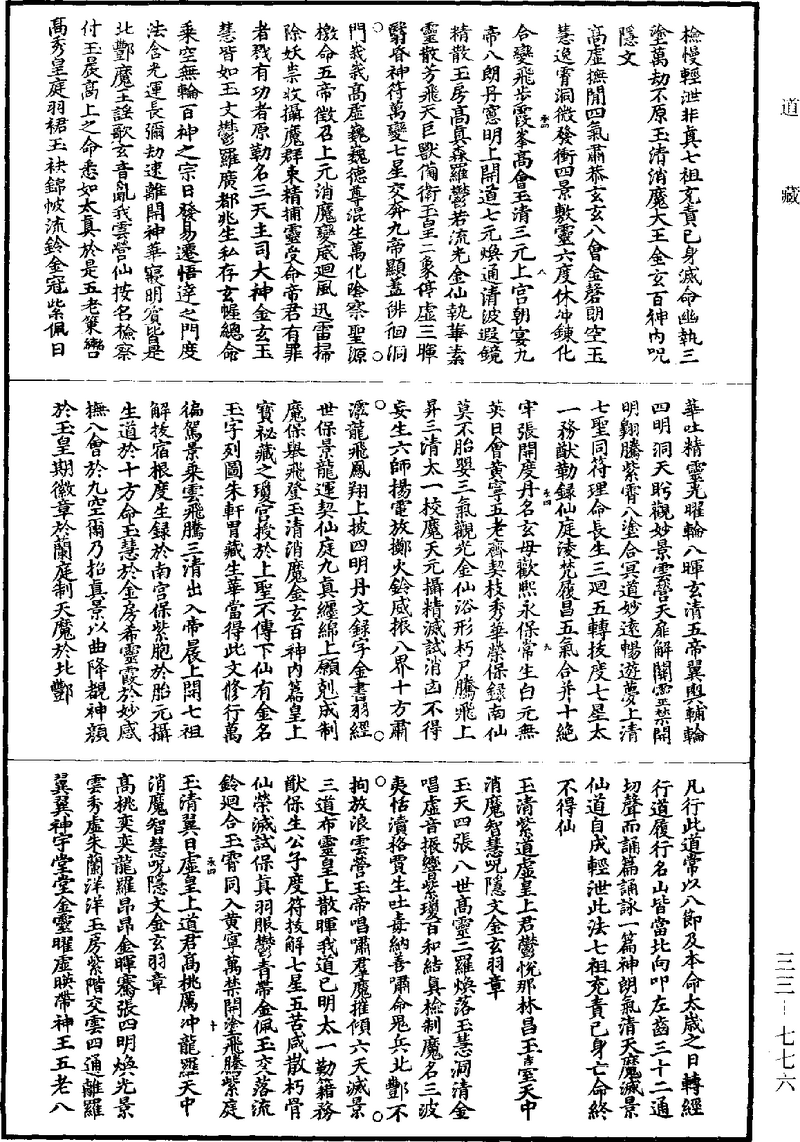 道藏
檢慢輕泄非真七祖充責己身滅命幽執三
塗萬劫不原玉清消魔大王金玄百神内呪
隱文
高虛撫閒四氣肅恭玄玄八會金磬朗空玉
慧逸霄洞微發衝四景敷靈六度休冲鍊化
合變飛步霞峯高會玉清三元上宫朝宴九
帝八朗丹憲明上開道七元煥通清波遐鏡
精散玉房高真森羅鬱若流光金仙執華素
靈散芳飛天巨獸備衛玉皇二象停虛三暉
翳昏神符萬變七星交奔九帝顯蓋徘徊洞
門峩峩高虛巍巍德尊混生萬化陰察聖源
檄命五帝徵召上元消魔變威迴風迅雷掃
除妖祟收攝魔群束精捕靈受命帝君有罪
者戮有功者原勒名三天主司大神金玄玉
慧皆如玉文鬱羅廣都兆生私存玄幄總命
乘空無輪百神之宗日發易遷悟達之門度
法含光運長彌劫速離開神華寢明育皆是
北酆魔王謡歌玄音亂我雲營仙按名檢察
付玉晨高上之命悉如太真於是五老策轡
高秀皇庭羽裙玉袂錦帔流鈴金冠紫佩日
華吐精靈光曜輪八暉玄清五帝翼輿輔輪
四明洞天眄觀妙景雲營天扉解關靈禁開
明翔騰紫霄八塗合冥道妙遠暢遊夢上清
七聖同符理命長生三迴五轉拔度七星太
一務猷勒録仙庭淩梵履昌五氣合并十絶
牢張開度丹名玄母歡熙永保常生白元無
英日會黄寧五老齊契枝秀華榮保録南仙
莫不胎嬰三氣觀光金仙浴形朽尸騰飛上
昇三清太一校魔天元攝精滅試消凶不得
妄生六師揚電放擲火鈴威振八界十方肅
漂龍飛鳳翔上披四明丹文録字金書羽經
世保景龍運契仙庭九真纏綿上願剋成制
魔保舉飛登玉清消魔金玄百神内籙皇上
寶祕藏之瓊宫授於上聖不傳下仙有金名
玉字列圖朱軒胃藏生華當得此文修行萬
徧駕景乘雲飛騰三清出入帝晨上開七祖
解拔宿根度生録於南宫保紫胞於胎元攝
生道於十方命玉慧於金房希靈霞於妙感
撫八會於九空爾乃招真景以曲降覩神顔
於玉皇期徽章於蘭庭制天魔於北酆
凡行此道常以八節及本命太歲之日轉經
行道履行名山皆當北向叩左齒三十二通
切聲而誦篇誦詠一篇神朗氣清天魔滅景
仙道自成輕泄此法七祖充責己身亡命終
不得仙
玉清紫道虛皇上君鬱悦那林昌玉臺天中
消魔智慧呪隱文金玄羽章
玉天四張八世高靈二羅煥落玉慧洞清金
唱虛音振響紫瓊百和結真檢制魔名三波
夷恬瀆格賈生吐毒納善嘯命鬼兵北酆不
拘放浪雲營玉帝唱嘯群魔摧傾六天滅景
三道布靈皇上散暉我道已明太一勒籍務
猷保生公子度符拔解七星五苦咸散朽骨
仙榮滅試保真羽服鬱青帶金佩玉交落流
鈴迴合玉霄同入黄寧萬禁開塗飛騰紫庭
玉清翼日虛皇上道君高桃厲冲龍羅天中
消魔智慧呪隱文金玄羽章
高桃奕奕龍羅昂昂金暉騫張四明煥光景
雲秀虛朱蘭洋洋玉房紫階交雲四通離羅
翼翼神宇堂堂金靈曜虛暎帶神王五老八
三三－七七六